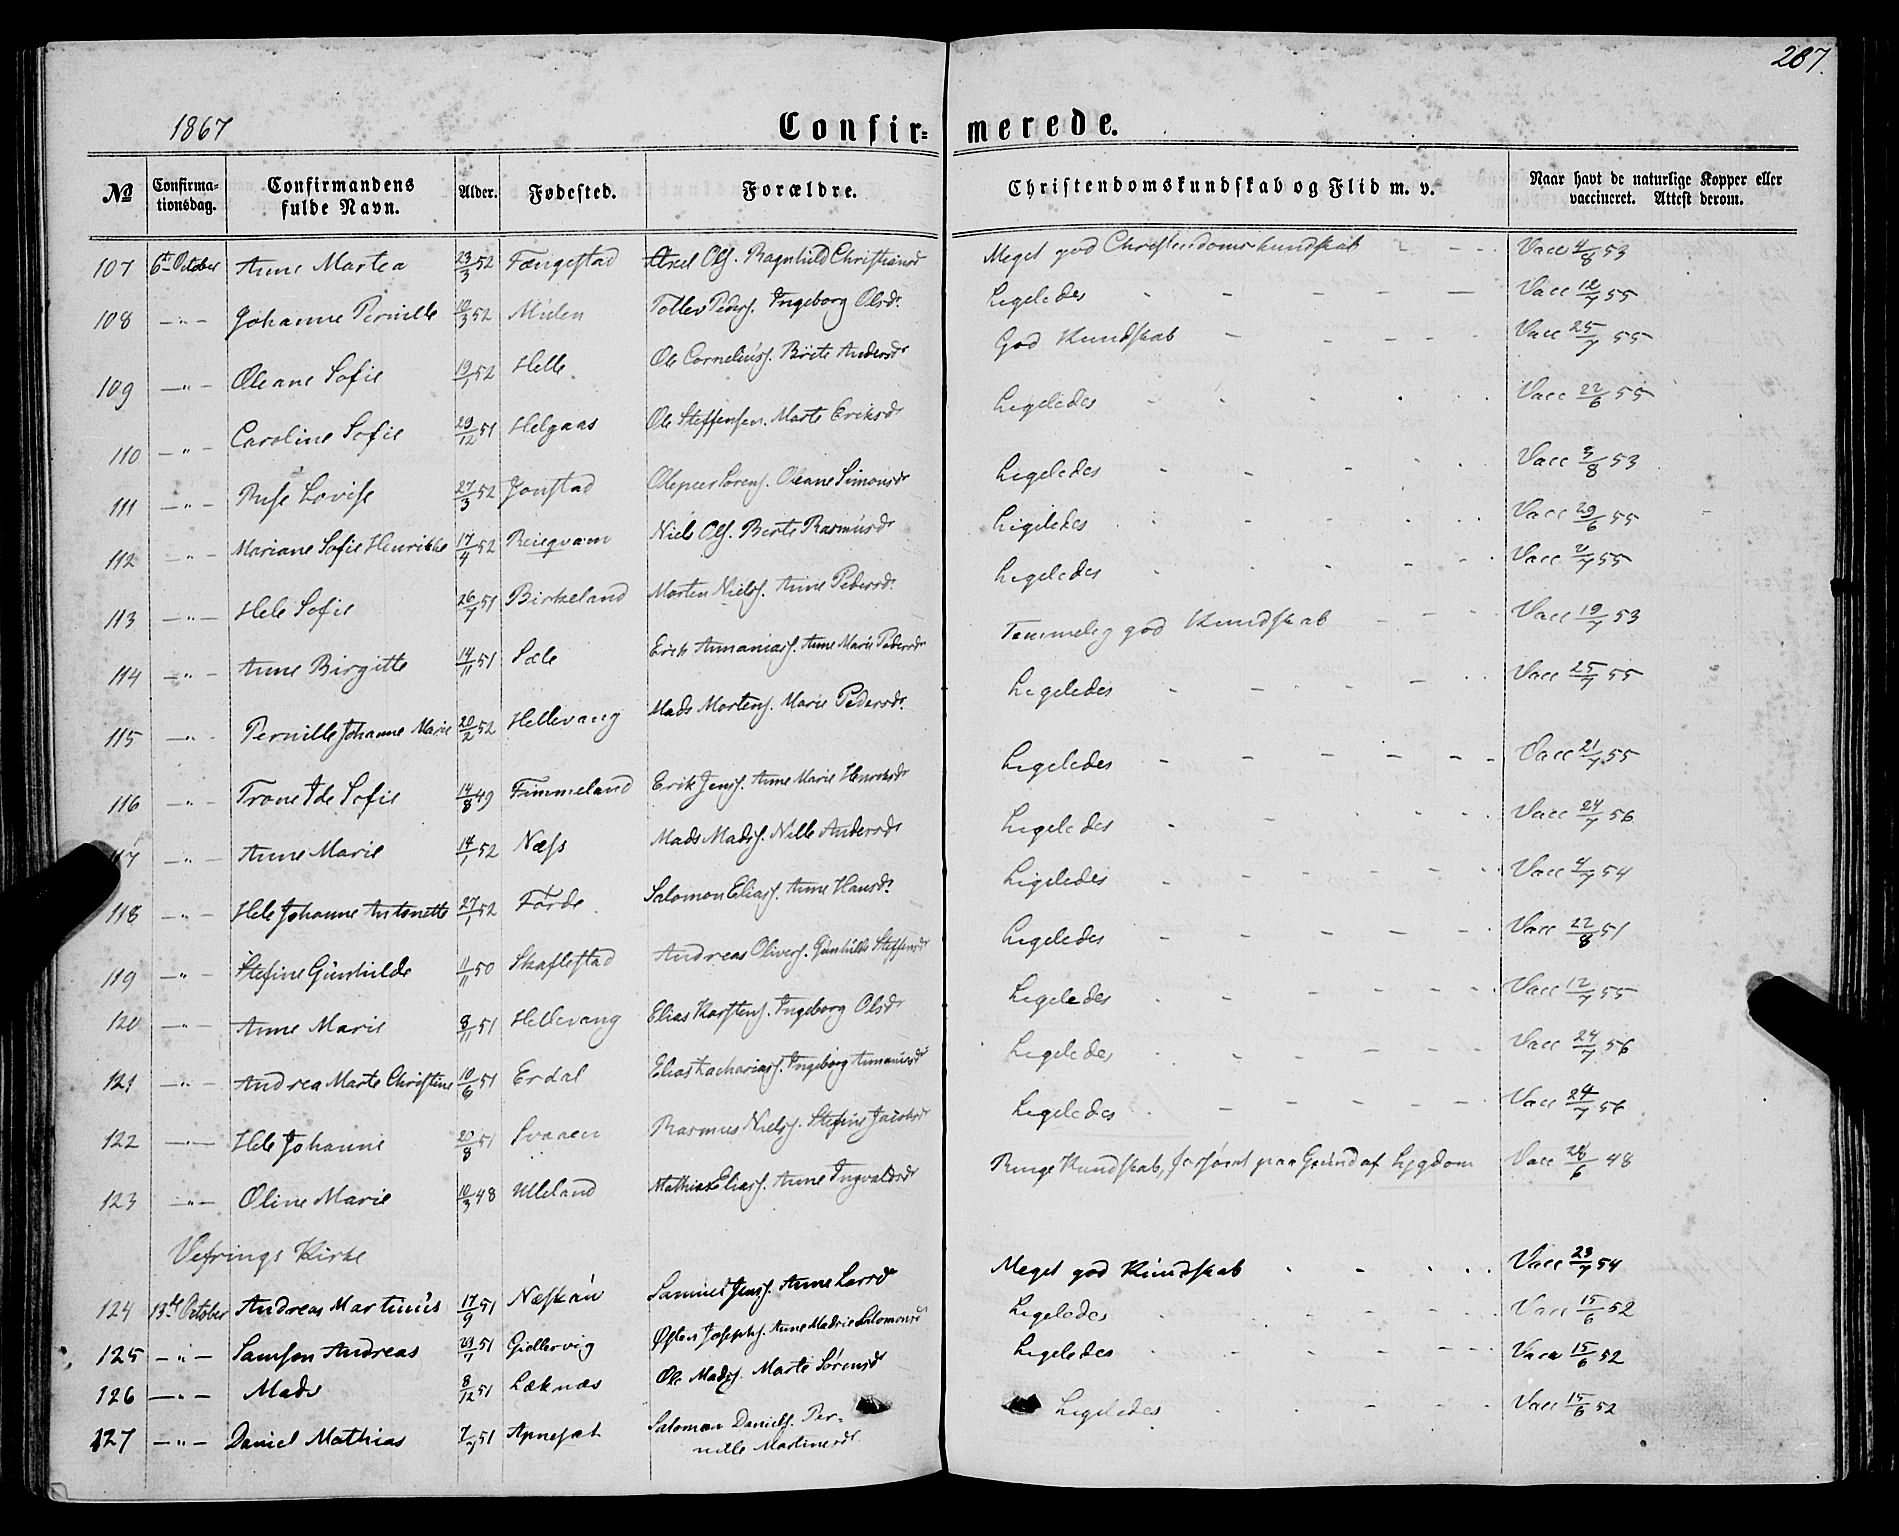 287.
1867 Confir= merede.
№ Confirma=tionsdag. Confirmandens fulde Navn. Alder. Fødested. Forældre. Christendomskundskab og Flid m. v. Naar havt de naturlige Kopper eller vaccineret. Attest derom.
107 6te October Anne Martea 23/3 52 Fængestad Olf. Ragnhild Christiansdr Meget god Christendomskundskab - - - Vacc 4/8 53
108 —"— Johanne Pernille 10/3 52 Mülen Tollev Peders. Ingeborg Olsdr. Ligeledes Vacc 12/7 55
109 —"— Oleane Sofie 19/1 52 Helle Ole Corneliüss. Børte Andersdr God Kundskab Vacc 25/7 55
110 —"— Caroline Sofie 29/12 51 Helgaas Ole Steffensen. Marte Eriksdr Ligeledes Vacc 22/6 55
111 —"— Lovise 27/3 52 Jonstad Olepeer Sørens. Oleane Simonsdr Ligeledes Vacc 3/8 53
112 —"— Mariane Sofie Henrikke 17/4 52 Reiqvam Niels Ols. Berte Rasmüsdr Ligeledes Vacc 29/6 55
113 —"— Hele Sofie 26/7 51 Birkeland Morten Niels. Anne Pedersdr. Ligeledes Vacc 2/7 55
114 —"— Anne Birgitte 14/11 51 Sæle Erik Annanias. Anne Marie Pedersdr Temmelig god Kundskab Vacc 19/7 53
115 —"— Pernille Johanne Marie 20/2 52 Hellevang Mads Mortens. Marie Pedersdr. Ligeledes Vacc 25/7 55
116 —"— Trone Ide Sofie 14/8 49 Fimmeland Erik Jens. Anne Marie Henriksdr Ligeledes Vacc 21/7 55
117 —"— Anne Marie 14/1 52 Næss Mads Mads. Nille Andersdr Ligeledes Vacc 24/7 56
118 —"— Hele Johanne Antonette 27/1 52 Førde Salomon Elias. Anne Hansdr. Ligeledes Vacc 4/7 54
119 —"— Stefine Günhilde 11/11 50 Skaflestad Andreas Olivers. Günhilde Steffensdr Ligeledes Vacc 22/8 51
120 —"— Anne Marie 8/11 51 Hellevang Elias Karstens. Ingeborg Olsdr Ligeledes Vacc 12/7 55
121 —"— Andrea Marte Christine 10/6 51 Erdal Elias Zacharias. Ingeborg Annaniasdr Ligeledes Vacc 24/7 56
122 —"— Hele Johanne 20/8 51 Svaaen Rasmus Niels. Stefine Jacobsdr Ligeledes Vacc 24/7 56
123 —"— Oline Marie 10/3 48 Ulleland Mathias Elias. Anne Ingvaldsdr Ringe Kundskab, forsømt paa Grund af Sygdom Vacc 28/6 48
Vefrings Kirke
124 13de October Andreas Martinüs 17/9 51 Næskün Samuel Jens. Anne Larsdr Meget god Kundskab Vacc 23/7 54
125 —"— Samson Andreas 29/7 51 Giellervig Østen Josephs. Anne Madrie Salomonsdr Ligeledes Vacc 15/6 52
126 —"— Mads 8/12 51 Læknæs Ole Mads. Marte Sørensdr Ligeledes Vacc 15/6 52
127 —"— Daniel Mathias 7/7 51 Apnesæt Salomon Daniels. Per-
nille Martinesdr Ligeledes Vacc 15/6 52